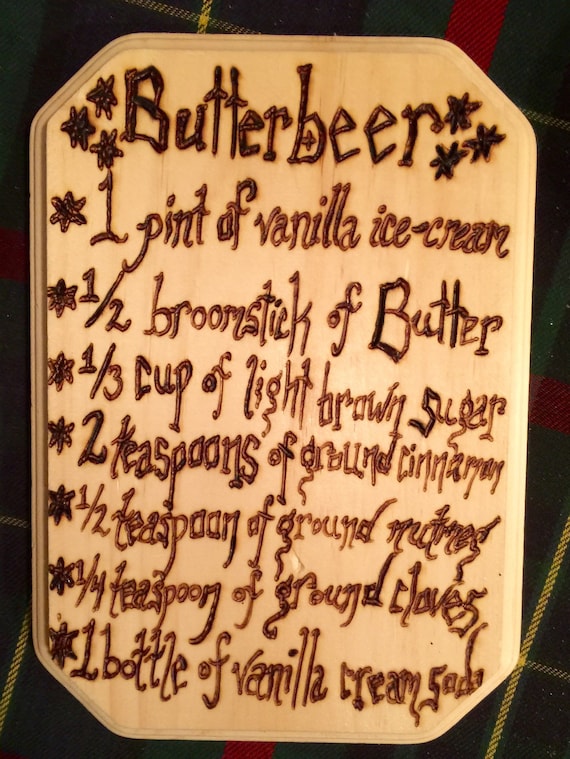 Butterbeer
1 pint of vanilla ice-cream
1/2 broomstick of Butter
1/3 cup of light brown sugar
2 teaspoons of ground cinnamon
1/2 teaspoon of ground nutmeg
1/4 teaspoon of ground cloves
1 bottle of vanilla cream soda